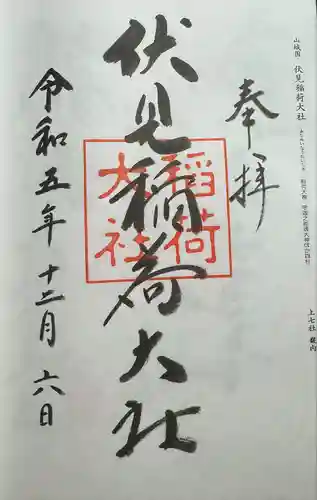 山城国 伏見稲荷大社
上七社 畿内
奉拝
伏見稲荷大社
稲荷
大社
令和五年十二月六日